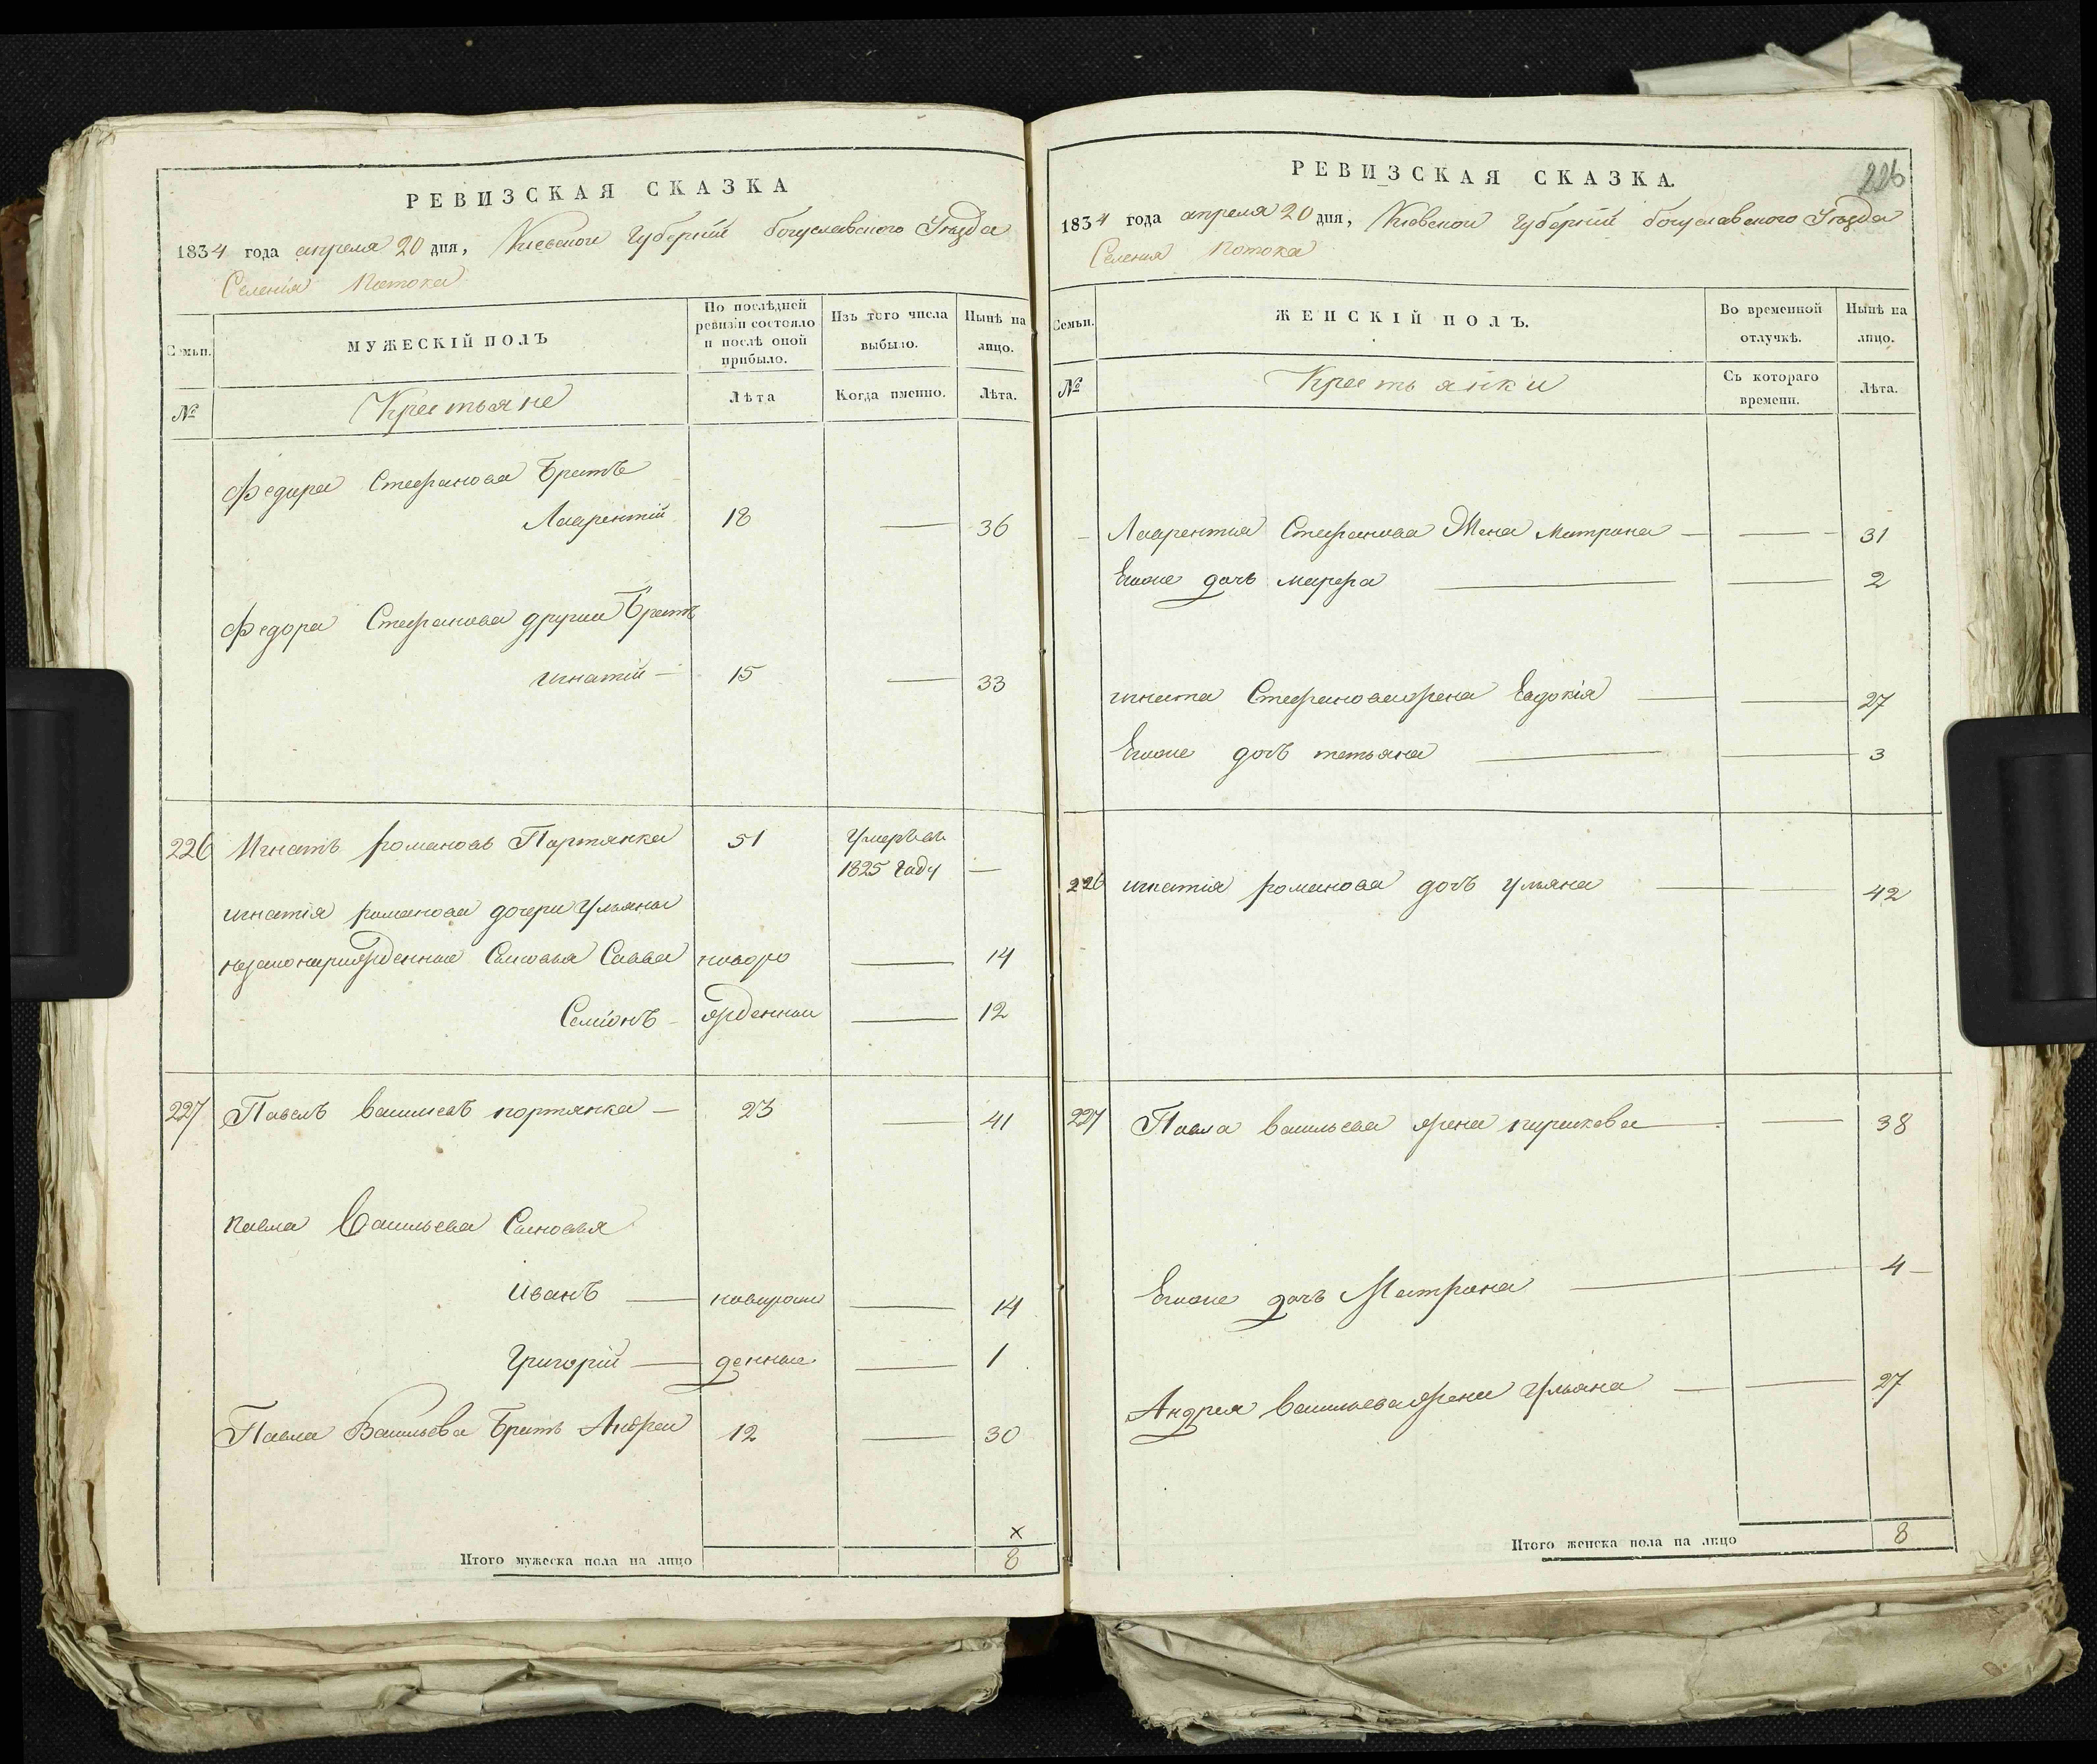 РЕВИЗСКАЯ СКАЗКА
1834 года апреля 20 дня, Киевской Губернїи богуславского Уѣзда
Селенїя Потока
Семьи.
МУЖЕСКІЙ ПОЛЪ
По послѣдней ревизіи состояло и послѣ оной прибыло.
Изъ того числа выбыло.
Нынѣ на лицо.
№
Крестьяне
Лѣта
Когда именно.
Лѣта.
Федора Стефанова Братъ
Лаврентїй 18 — 36
Федора Стефанова другии Братъ
игнатїй — 15 — 33
226 Игнатъ романовъ Портянка 51 Умеръ въ
1825 Году —
игнатїя романова дочери Ульяны
незаконнорожденные Сыновья Савва новоро — 14
Семїонъ — жденныи — 12
227 Павелъ васильевъ портянка — 23 — 41
павла Васильева Сыновья
иванъ — новорож — 14
Григорїй — денные — 1
Павла Васильева Братъ Андреи 12 — 30
×
Итого мужеска пола на лицо 8
РЕВИЗСКАЯ СКАЗКА.
226
1834 года апреля 20 дня, Киевскои Губернїи богуславского Уѣзда
Селения Потока
Семьи.
ЖЕНСКІЙ ПОЛЪ.
Во временной отлучкѣ.
Нынѣ на лицо.
№
Крестьянки
Съ котораго времени.
Лѣта.
Лаврентїя Стефанова Жена Матрона — — 31
Егоже дочь марфа — — 2
игната Стефанова жена Евдокїя — — 27
Егоже дочь татьяна — — 3
226 игнатїя романова дочь ульяна — — 42
227 Павла васильева жена — — 38
Егоже дочь Матрона — — 4
Андрея васильева жена Ульяна — — 27
Итого женска пола на лицо 8